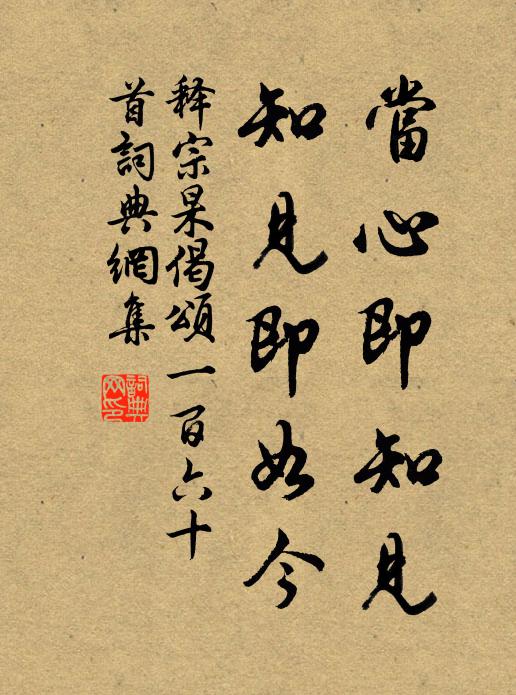 當心即知見
知見即如今
释宗杲偈頌一百六十
首詞典網集
詞典網印